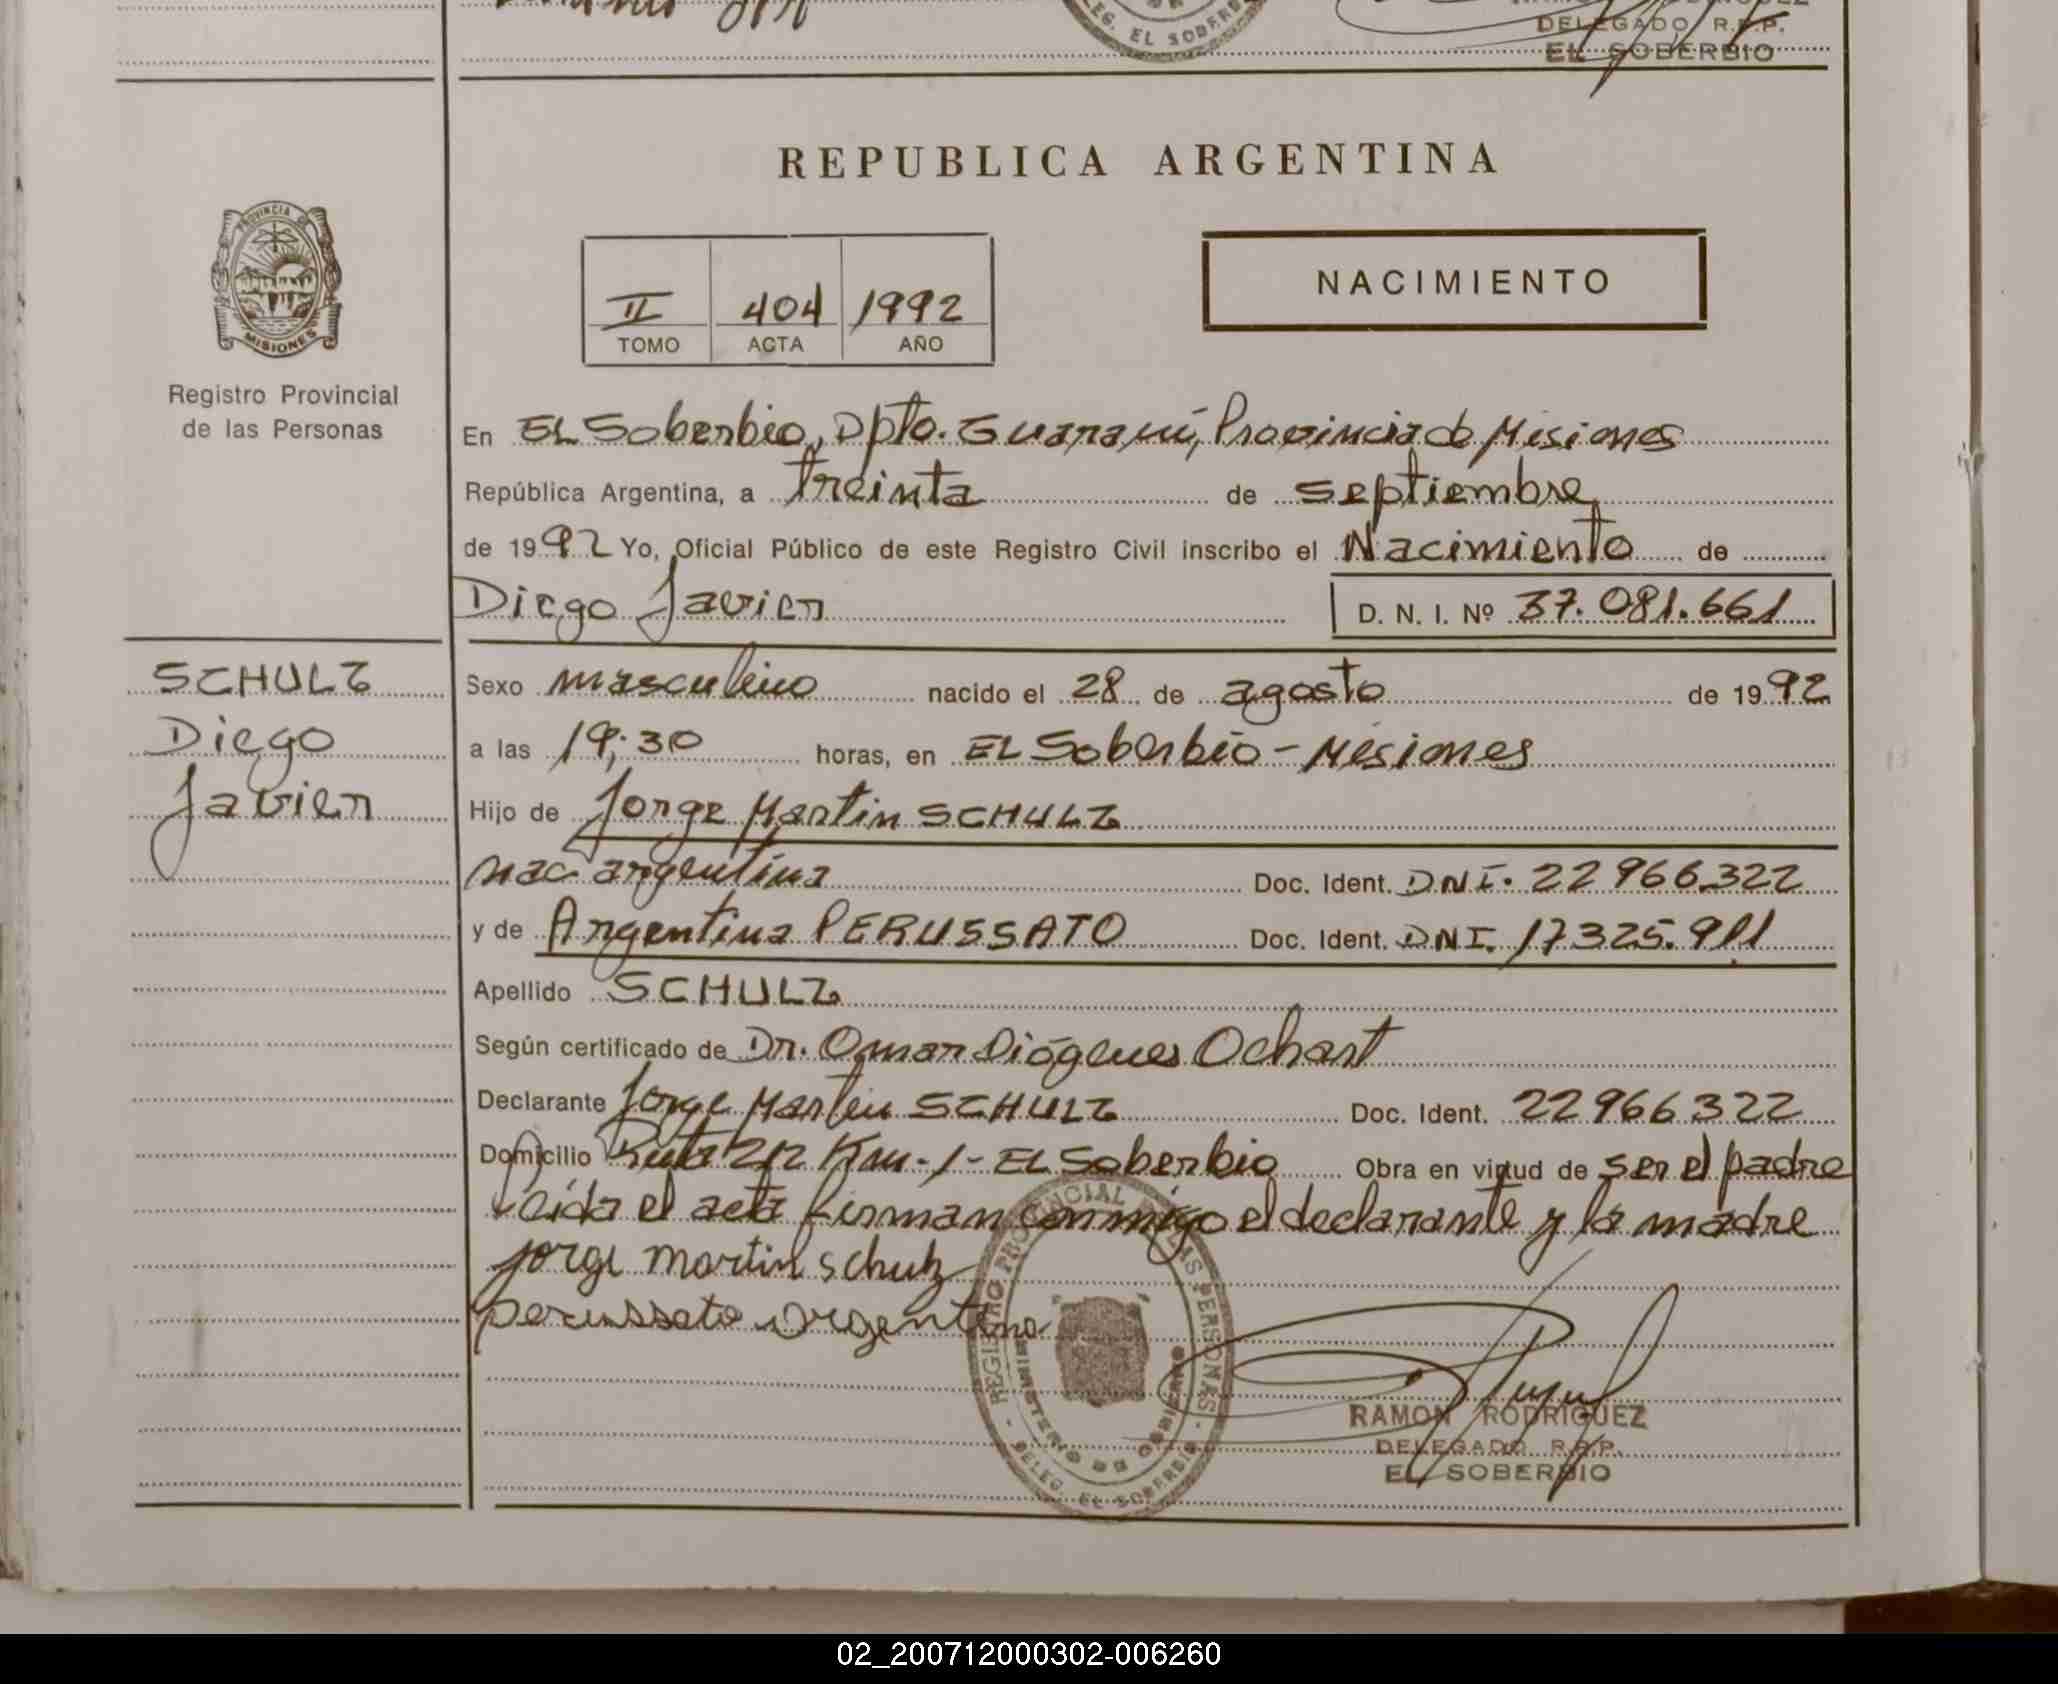 DELEG. EL SOBERBIO
DELEGADO R.P.P.
EL SOBERBIO
REPUBLICA ARGENTINA
PROVINCIA DE
MISIONES
Registro Provincial
de las Personas
II 404 1992
TOMO ACTA AÑO
NACIMIENTO
En EL Soberbio, Dpto. Guaraní, Provincia de Misiones
República Argentina, a treinta de septiembre
de 1992 Yo, Oficial Público de este Registro Civil inscribo el Nacimiento de
Diego Javier D. N. I. Nº 37.081.661
SCHULZ
Diego
Javier
Sexo masculino nacido el 28 de agosto de 1992
a las 19:30 horas, en EL Soberbio - Misiones
Hijo de Jorge Martin SCHULZ
nac argentina Doc. Ident. DNI. 22 966322
y de Argentina PERUSSATO Doc. Ident. DNI. 17325.911
Apellido SCHULZ
Según certificado de Dr. Omar Diógenes Ochast
Declarante Jorge Martin SCHULZ Doc. Ident. 22966322
Domicilio Ruta 212 Km-1- EL Soberbio Obra en virtud de ser el padre
Leida el acta firman conmigo el declarante y la madre
jorge martin schulz
perussato argentina
REGISTRO PROVINCIAL DE LAS PERSONAS
MINISTERIO DE GOBIERNO
DELEG. EL SOBERBIO
RAMON RODRIGUEZ
DELEGADO R.P.P.
EL SOBERBIO
02_200712000302-006260